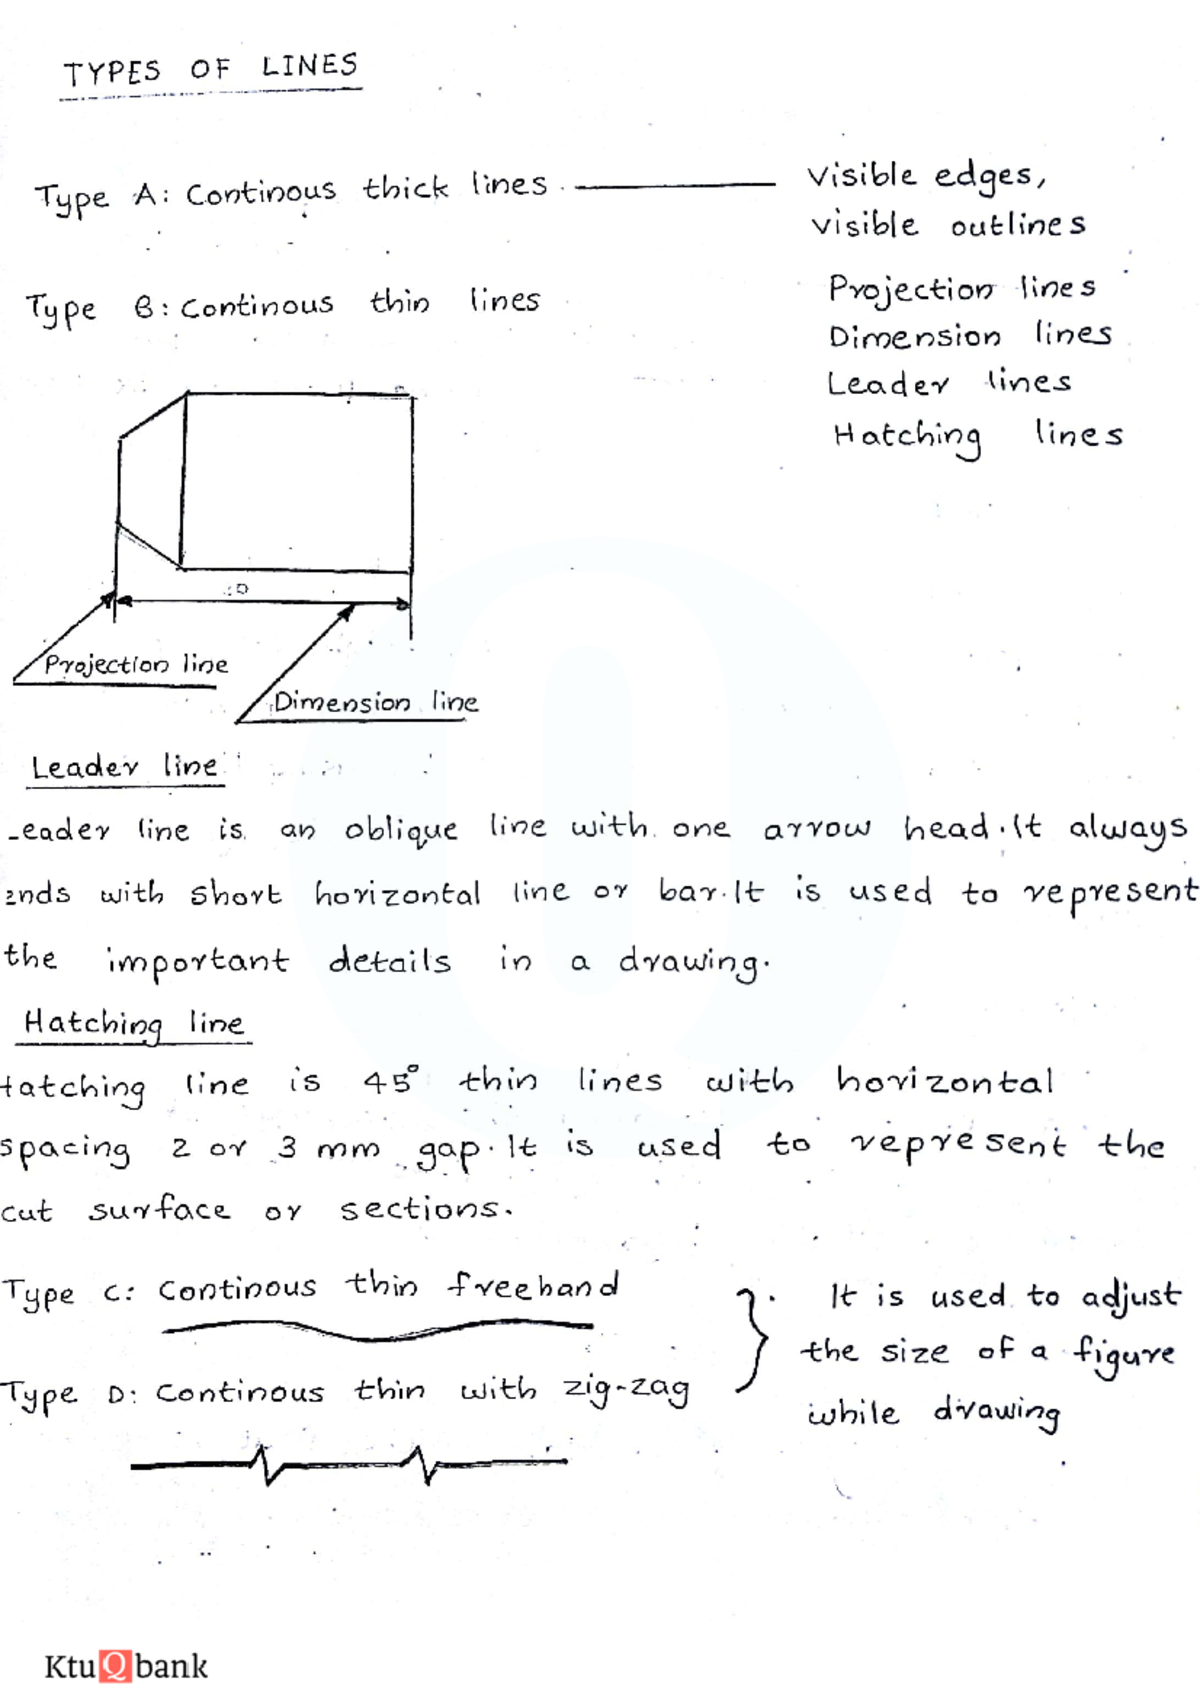 TYPES OF LINES
Type A: Continous thick lines
Visible edges,
visible outlines
Type B: Continous thin lines
Projection lines
Dimension lines
Leader lines
Hatching lines
Projection line
Dimension line
Leader line
eader line is an oblique line with one arrow head. It always
ends with short horizontal line or bar. It is used to represent
the important details in a drawing.
Hatching line
Hatching line is 45° thin lines with horizontal
spacing 2 or 3 mm gap. It is used to represent the
cut surface or sections.
Type C: Continous thin freehand
Type D: Continous thin with zig-zag
It is used to adjust
the size of a figure
while drawing
KtuQbank